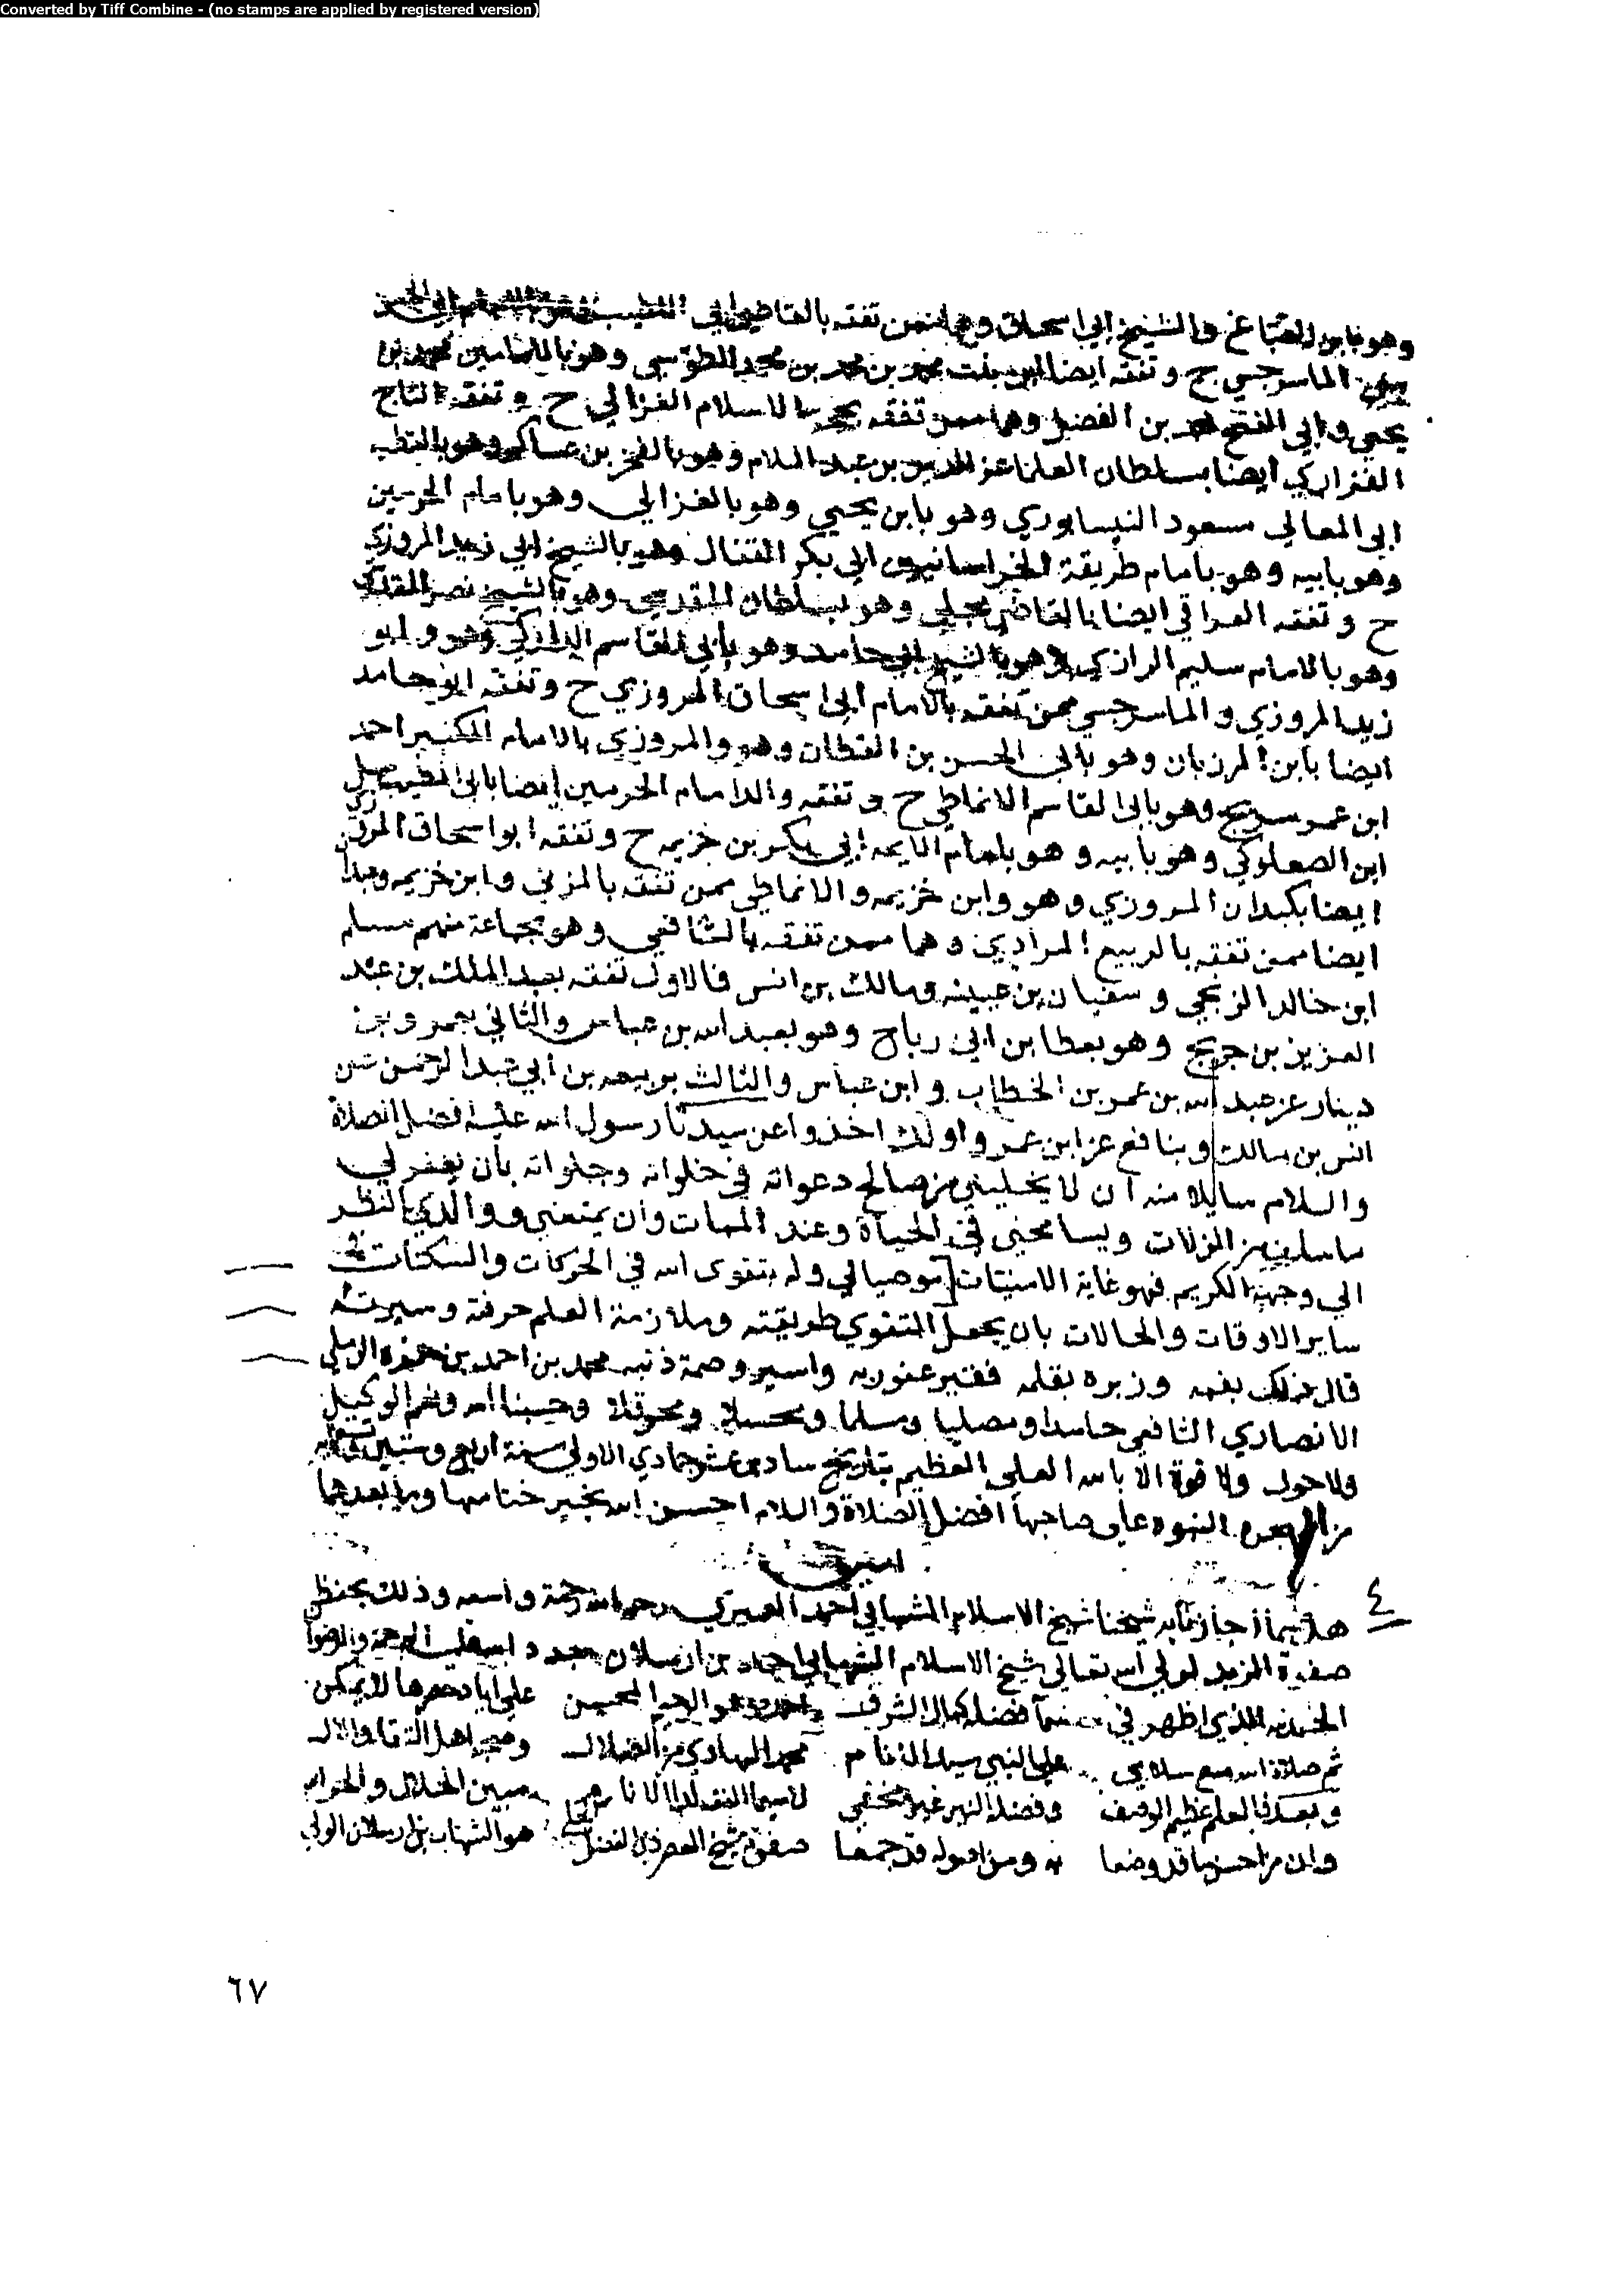 Converted by Tiff Combine - (no stamps are applied by registered version)
وهو بابن الصباغ والشيخ ابي اسحاق وهما ممن تفقه بالقاضي ابي الطيب
الماسرجسي ح وتفقه ايضا ابن بنت محمد بن محمد بن محمد الطوسي وهو بالامامين محمد بن
يحيى وابي الفتح محمد بن الفضل وهما ممن تفقه بحجة الاسلام الغزالي ح وتفقه التاج
الفزاري ايضا بسلطان العلما عز الدين بن عبد السلام وهو بالفخر بن عساكر وهو بالقطب
ابي المعالي مسعود النيسابوري وهو بابن يحيي وهو بالغزالي وهو بامام الحرمين
وهو بابيه وهو بامام طريقة الخراسانيين ابي بكر القفال وهو بالشيخ ابي زيد المروزي
ح وتفقه العراقي ايضا بالقاضي مجلي وهو بسلطان المقدسي وهو بالشيخ نصر المقدسي
وهو بالامام سليم الرازي وهو بالشيخ ابي حامد وهو بابي القاسم الداركي وهو وابو
زيد المروزي والماسرجسي ممن تفقه بالامام ابي اسحاق المروزي ح وتفقه ابو حامد
ايضا بابن المرزبان وهو بابي الحسن بن القطان وهو والمروزي بالامام الكبير احمد
ابن عمر سريج وهو بابي القاسم الانماطي ح وتفقه والد امام الحرمين ايضا بابي الطيب سهل
ابن الصعلوكي وهو بابيه وهو بامام الايمه ابي بكر بن خزيمه ح وتفقه ابو اسحاق المروزي
ايضا بكبدان المروزي وهو وابن خزيمه والانماطي ممن تفقه بالمزني وابن خزيمه وعبدا
ايضا ممن تفقه بالربيع المرادي وهما ممن تفقه بالشافعي وهو بجماعة منهم مسلم
ابن خالد الزنجي وسفيان بن عيينه ومالك بن انس فالاول تفقه بعبد الملك بن عبد
العزيز بن جريج وهو بعطا بن ابي رباح وهو بعبد الله بن عباس والثاني بعمرو بن
دينار عن عبد الله بن عمر بن الخطاب وابن عباس والثالث بربيعه بن ابي عبد الرحمن عن
انس بن مالك وبنافع عن ابن عمر واولئك اخذوا عن سيدنا رسول الله عليه افضل الصلاة
والسلام سايلا منه ان لا يخليني من صالح دعواته في خلواته وجلواته بان يغفر لي
ما سلف من الزلات ويسامحني في الحياة وعند الممات وان يمتعني ووالدي النظر
الي وجهه الكريم فهو غاية الامنيات موصيا لي وله بتقوى الله في الحركات والسكنات في
ساير الاوقات والحالات بان يجعل التقوي طريقته وملازمة العلم حرفته وسيرته
قال ذلك بفمه وزبره بقلمه فقير عفو ربه واسير وصمة ذنبه محمد بن احمد بن حمزه الرملي
الانصاري الشافعي حامدا ومصليا ومسلما ومحسبلا ومحوقلا وحسبنا الله ونعم الوكيل
ولا حول ولا قوة الا بالله العلي العظيم بتاريخ سادس عشر جمادي الاولي سنة اربع وستين وتسعمايه
من الهجره النبوه على صاحبها افضل الصلاة والسلام احسن الله بخير ختامها وما بعدها
امين
٤ هذا ما اجازنا به شيخنا شيخ الاسلام الشهابي احمد رحمه الله رحمة واسعه وذلك بحفظي
صفوة الزبد لولي الله تعالي شيخ الاسلام الشهابي احمد بن ارسلان الرحمة والرضوان
الحمد لله الذي اظهر في علي اياد حصرها لا يمكن
ثم صلاة الله مع سلامي علي النبي سيد الانام محمد الهادي من الضلال وصحبه اهل التقا والال
وبعد فالعلم عظيم الوصف وفضله غير مخفي لا سيما الفقه مبين الحلال والحرام
وان من احسن ما قد وضعا ومن اصوله قد جمعا صفوة شيخ العصر ذي الفضل الجلي هو الشهاب بن ارسلان الولي
٦٧